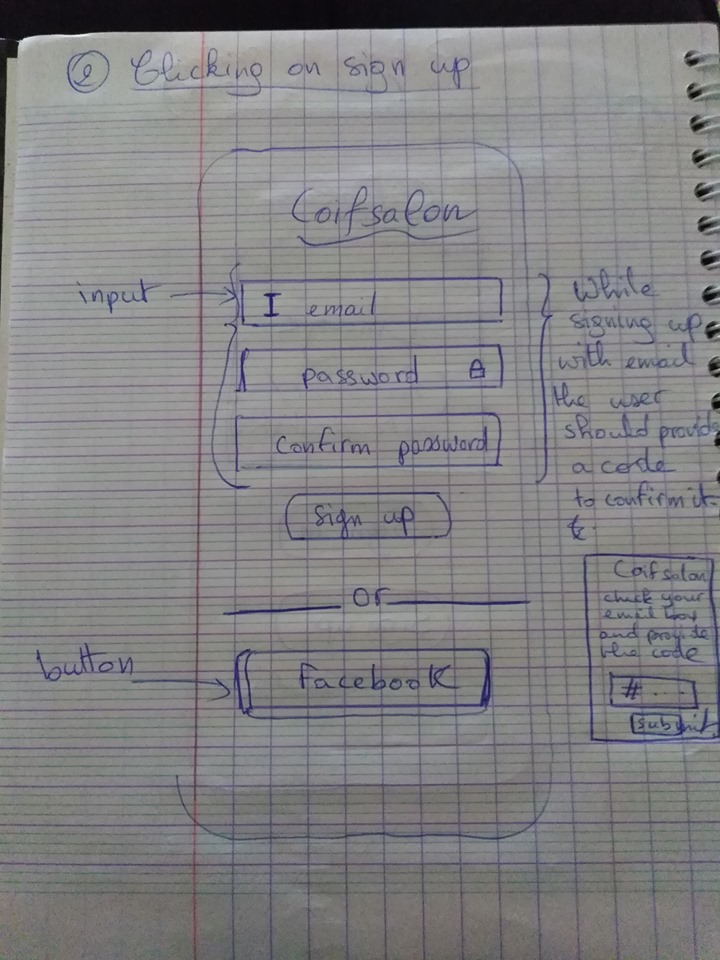 2 Clicking on sign up
Coifsalon
input
I email
password
Confirm password
Sign up
While
signing up
with email
the user
should provide
a code
to confirm it
or
button
facebook
Coifsalon
check your
email box
and provide
the code
# ....
submit